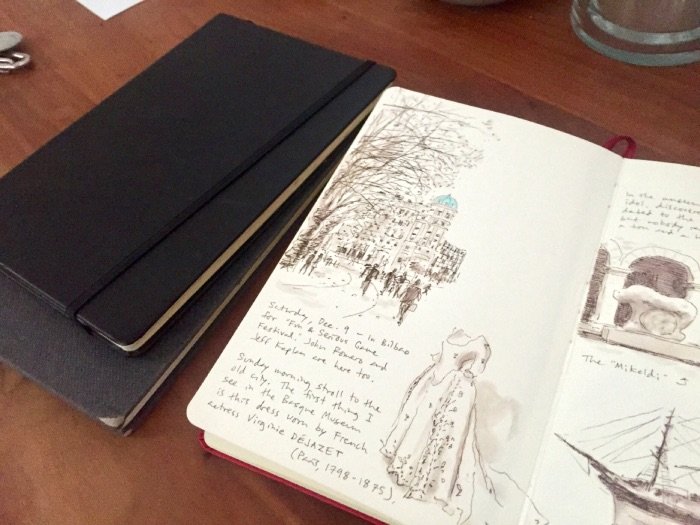 Saturday, Dec. 9 – in Bilbao
for "Fun & Serious Game
Festival." John Romero and
Jeff Kaplan are here too.
Sunday morning stroll to the
old city. The first thing I
see in the Basque Museum
is this dress worn by French
actress Virginie DÉJAZET
(Paris, 1798-1875).
In the
idol, discov
dated to the
but nobody
The "Mikeldi"